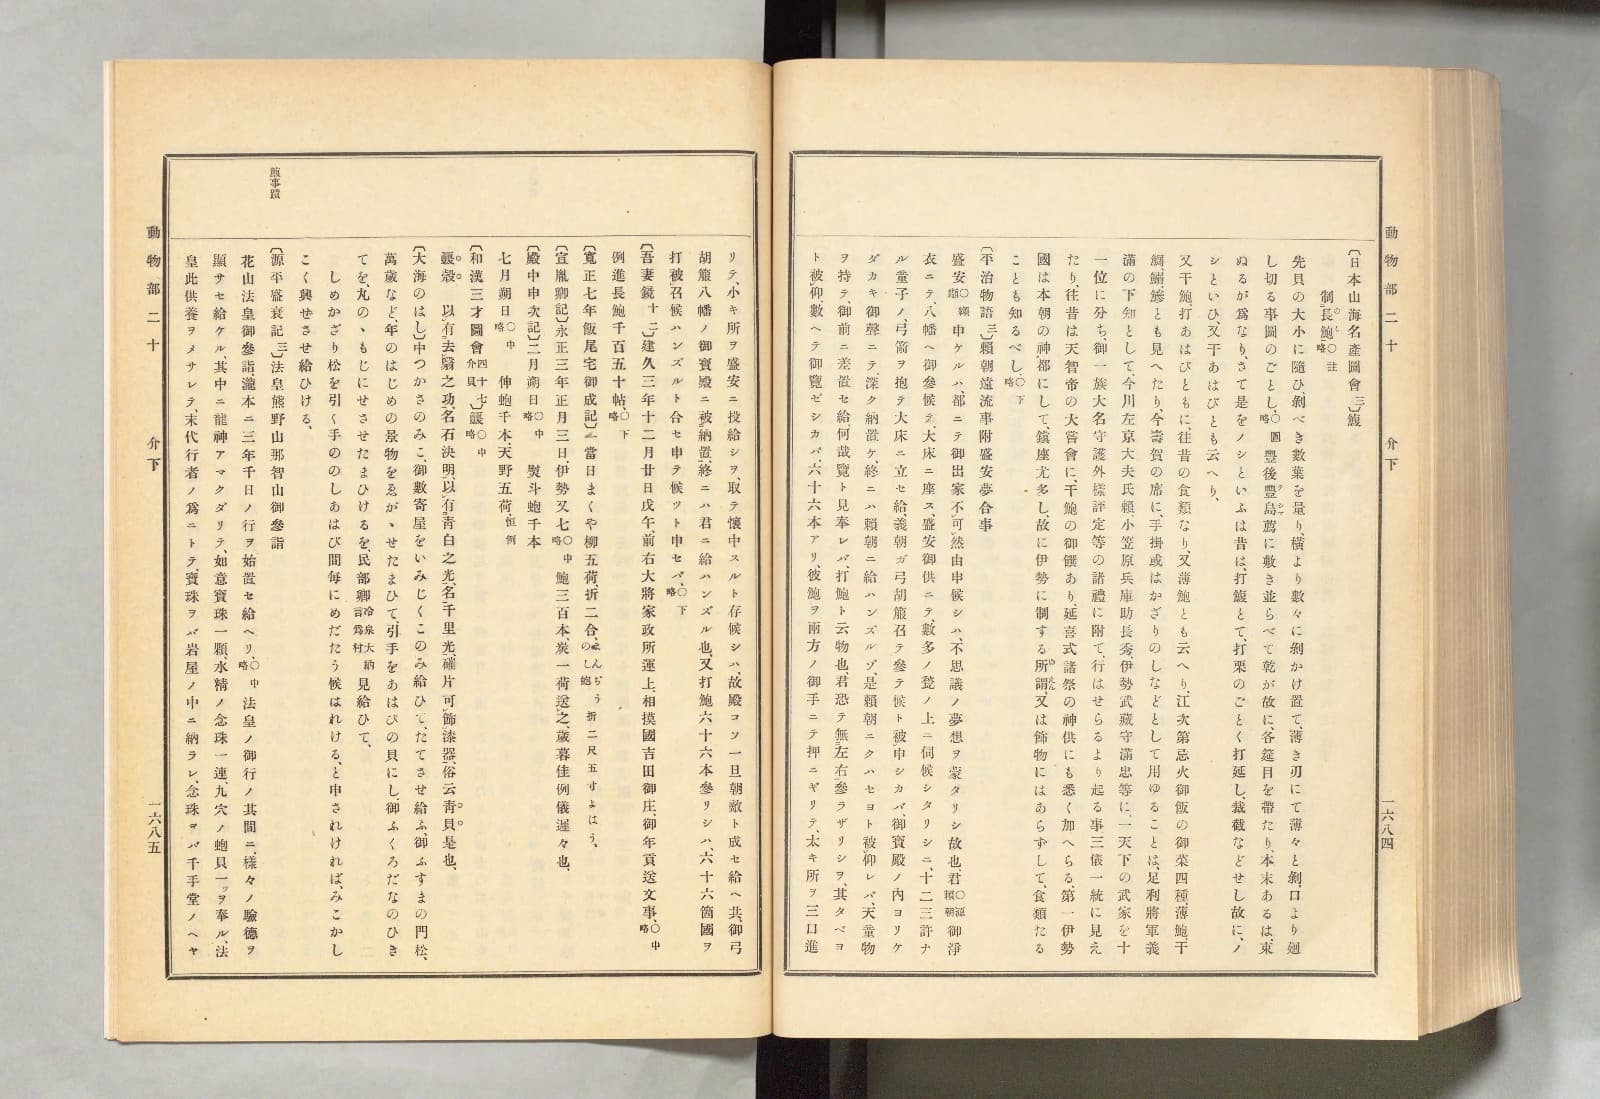 動物部二十　介下　一六八四
〔日本山海名產圖會三〕鰒
制長鮑○註略
先貝の大小に隨ひ剝べき數葉を量り、橫より數々に剝かけ置て薄き刃にて薄々と剝、口より廻
し切る事圖のごとし、○圖略豐後豐島薦に敷き並らべて乾が故に各筵目を帶たり、本末あるは束
ぬるが爲なり、さて是をノシといふは昔は、打鰒とて、打栗のごとく打延し、裁截などせし故に、ノ
シといひ、又干あはびとも云へり、
又干鮑、打あはびともに、往昔の食類なり、又薄鮑とも云へり、江次第忌火御飯の御菜四種、薄鮑、干
鯛、鰯、鯵とも見へたり、今壽賀の席に、手掛或はかざりのしなどとして用ゆることは、足利將軍義
滿の下知として、今川左京大夫氏賴小笠原兵庫助長秀、伊勢武藏守滿忠等に、一天下の武家を十
一位に分ち、御一族大名守護外樣評定等の諸禮に附て、行はせらるより起る事三儀一統に見え
たり、往昔は天智帝の大嘗會に、干鮑の御饌あり、延喜式諸祭の神供にも悉く加へらる、第一伊勢
國は本朝の神都にして、鎭座尤多し、故に伊勢に制する所謂又は飾物にはあらずして、食類たる
ことも知るべし、○下略
〔平治物語三〕賴朝遠流事附盛安夢合事
盛安○纐纈申ケルハ都ニテ御出家不可然由申候シハ、不思議ノ夢想ヲ蒙タリシ故也、君○源賴朝御淨
衣ニテ、八幡ヘ御參候テ、大床ニ座ス、盛安御供ニテ、數多ノ甃ノ上ニ伺候シタリシニ、十二三許ナ
ル童子ノ、弓箭ヲ抱テ大床ニ立セ給、義朝ガ弓胡籙召テ參テ候ト被申シカバ、御寶殿ノ內ヨリケ
ダカキ御聲ニテ、深ク納置ケ、終ニハ賴朝ニ給ハンズルゾ、是賴朝ニクハセヨト被仰レバ、天童物
ヲ持テ、御前ニ差置セ給、何哉覽ト見奉レバ、打鮑ト云物也、君恐テ無左右參ラザリシヲ、其タベヨ
ト被仰、數ヘテ御覽ゼシカバ、六十六本アリ、彼鮑ヲ兩方ノ御手ニテ押ニギリテ、太キ所ヲ三口進
リテ、小キ所ヲ盛安ニ投給シヲ、取テ懷中スルト存候シハ、故殿コソ一旦朝敵ト成セ給ヘ共、御弓
胡籙八幡ノ御寶殿ニ被納置、終ニハ君ニ給ハンズル也、又打鮑六十六本參リシハ、六十六箇國ヲ
打被召候ハンズルト合セ申テ候ツト申セバ、○下略
〔吾妻鏡十二〕建久三年十二月廿日戊午、前右大將家政所運上、相摸國吉田御庄、御年貢送文事、○中略
例進長鮑千百五十帖、○下略
〔寬正七年飯尾宅御成記〕一當日まくや柳五荷、折二合、まんぢう折二尺五寸よはう、のし鮑
〔宣胤卿記〕永正三年正月三日、伊勢又七○中略鮑三百本、炭一荷送之、歲暮佳例儀遲々也、
〔殿中申次記〕二月朔日○中略　熨斗蚫千本
七月朔日○中略　伸蚫千本、天野五荷、恒例
〔和漢三才圖會四十七介貝〕鰒○中略
鰒殼　以有去翳之功、名石決明、以有靑白之光、名千里光、碓片可飾漆器、俗云靑貝是也、
〔大海のはし〕中つかさのみこ、御數寄屋をいみじくこのみ給ひて、たてさせ給ふ、御ふすまの門松、
萬歲など、年のはじめの景物をゑがゝせたまひて、引手をあはびの貝にし、御ふくろだなのひき
てを、丸のゝもじにせさせたまひけるを、民部卿冷泉大納言爲村見給ひて、
しめかざり松を引く手ののしあはび間每にめだたう候はれける、と申されければ、みこかし
こく興せさせ給ひける、
鮑事蹟
〔源平盛衰記三〕法皇熊野山那智山御參詣
花山法皇御參詣、瀧本ニ三年千日ノ行ヲ始置セ給ヘリ、○中略法皇ノ御行ノ其間ニ、樣々ノ驗德ヲ
顯サセ給ケル、其中ニ龍神アマクダリテ、如意寶珠一顆、水精ノ念珠一連、九穴ノ蚫貝一ツヲ奉ル、法
皇此供養ヲメサレテ、末代行者ノ爲ニトテ、寶珠ヲバ岩屋ノ中ニ納ラレ、念珠ヲバ千手堂ノヘヤ
動物部二十　介下　一六八五